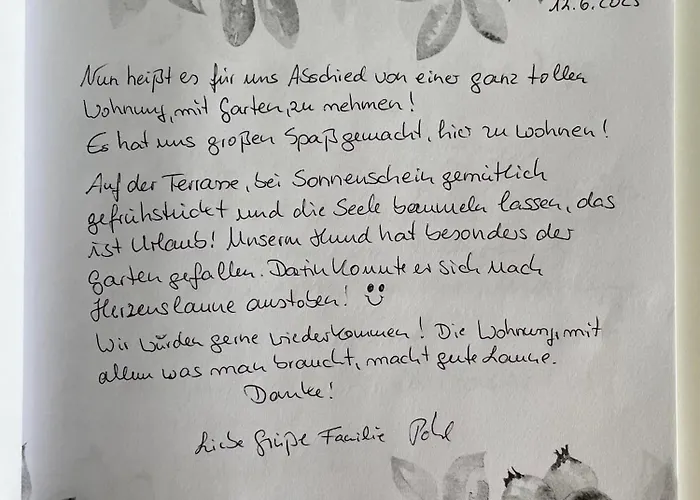 12.6.2023
Nun heißt es für uns Abschied von einer ganz tollen
Wohnung, mit Garten, zu nehmen!
Es hat uns großen Spaß gemacht, hier zu wohnen!
Auf der Terrasse, bei Sonnenschein gemütlich
gefrühstückt und die Seele baumeln lassen, das
ist Urlaub! Unserm Hund hat besonders der
Garten gefallen. Darin konnte er sich nach
Herzenslaune austoben!
Wir würden gerne wiederkommen! Die Wohnung, mit
allem was man braucht, macht gute Laune.
Danke!
Liebe Grüße Familie Pohl